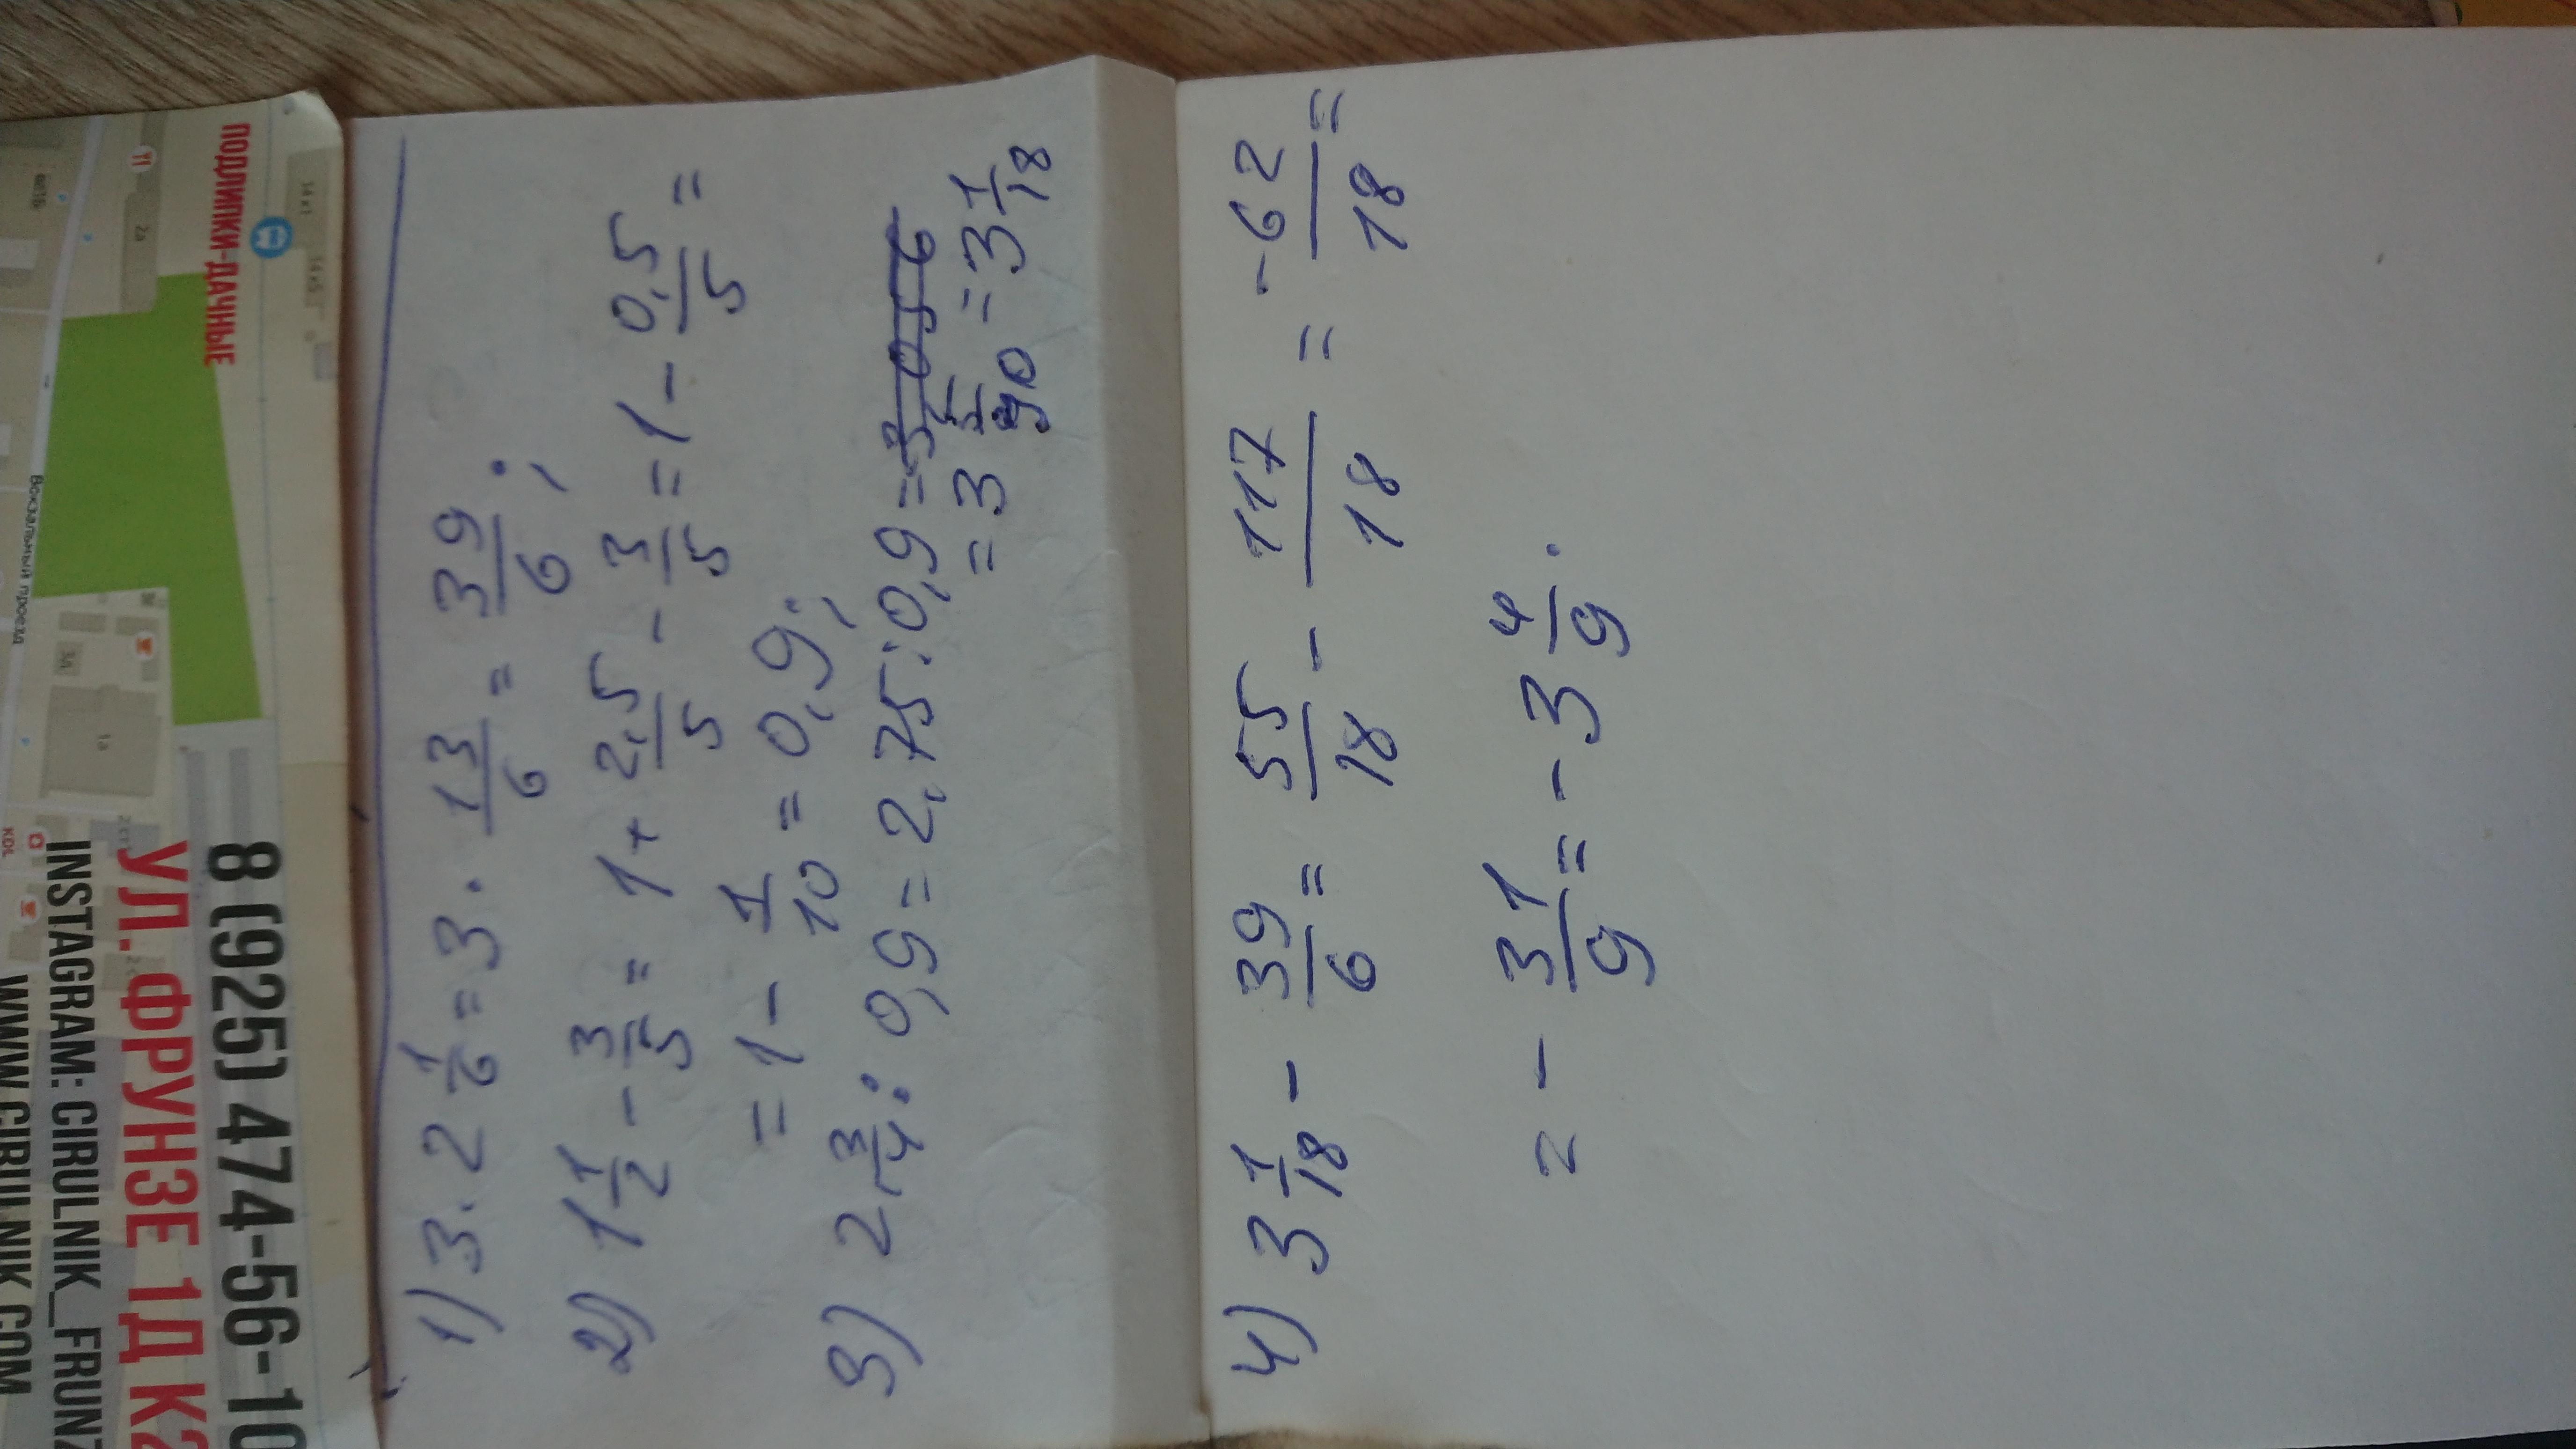 ПОДЛИПКИ-ДАЧНЫЕ
Вокзальный проезд
14к1
14к5
2а
1а
3А
8 (925) 474-56-10
УЛ. ФРУНЗЕ 1Д К2
INSTAGRAM: CIRULNIK_FRUNZ
WWW.CIRULNIK.COM
1) 3 · 2 1/6 = 3 · 13/6 = 39/6 ;
2) 1 1/2 - 3/5 = 1 + 2,5/5 - 3/5 = 1 - 0,5/5 =
= 1 - 1/10 = 0,9 ;
3) 2 3/4 : 0,9 = 2,75 : 0,9 =
= 3 5/90 = 3 1/18
4) 3 1/18 - 39/6 = 55/18 - 117/18 = -62/18 =
= - 31/9 = - 3 4/9 .